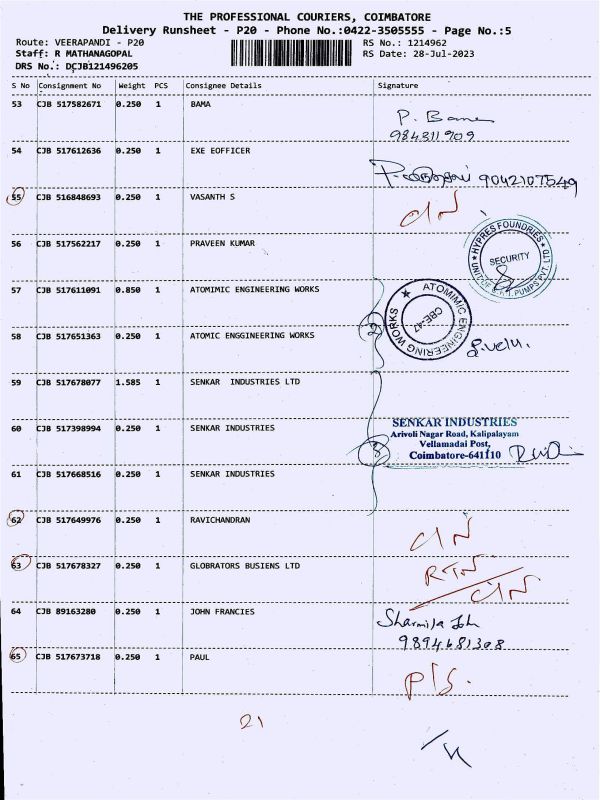 THE PROFESSIONAL COURIERS, COIMBATORE
Delivery Runsheet - P20 - Phone No.:0422-3505555 - Page No.:5
Route: VEERAPANDI - P20 RS No.: 1214962
Staff: R MATHANAGOPAL RS Date: 28-Jul-2023
DRS No.: DCJB121496205
S No Consignment No Weight PCS Consignee Details Signature
53 CJB 517582671 0.250 1 BAMA P. Bama
984311909
54 CJB 517612636 0.250 1 EXE EOFFICER 9042107549
55 CJB 516848693 0.250 1 VASANTH S
56 CJB 517562217 0.250 1 PRAVEEN KUMAR
HYPRES FOUNDRIES
SECURITY
UNIT OF PUMPS PVT. LTD
57 CJB 517611091 0.850 1 ATOMIMIC ENGINEERING WORKS
ATOMIMIC ENGINEERING WORKS
CBE-47
2
58 CJB 517651363 0.250 1 ATOMIC ENGGINEERING WORKS
59 CJB 517678077 1.585 1 SENKAR INDUSTRIES LTD
60 CJB 517398994 0.250 1 SENKAR INDUSTRIES
SENKAR INDUSTRIES
Arivoli Nagar Road, Kalipalayam
Vellamadai Post,
Coimbatore-641110
3
61 CJB 517668516 0.250 1 SENKAR INDUSTRIES
62 CJB 517649976 0.250 1 RAVICHANDRAN
63 CJB 517678327 0.250 1 GLOBRATORS BUSIENS LTD RTN
64 CJB 89163280 0.250 1 JOHN FRANCIES Sharmila Joh
9894681308
65 CJB 517673718 0.250 1 PAUL P/S.
21